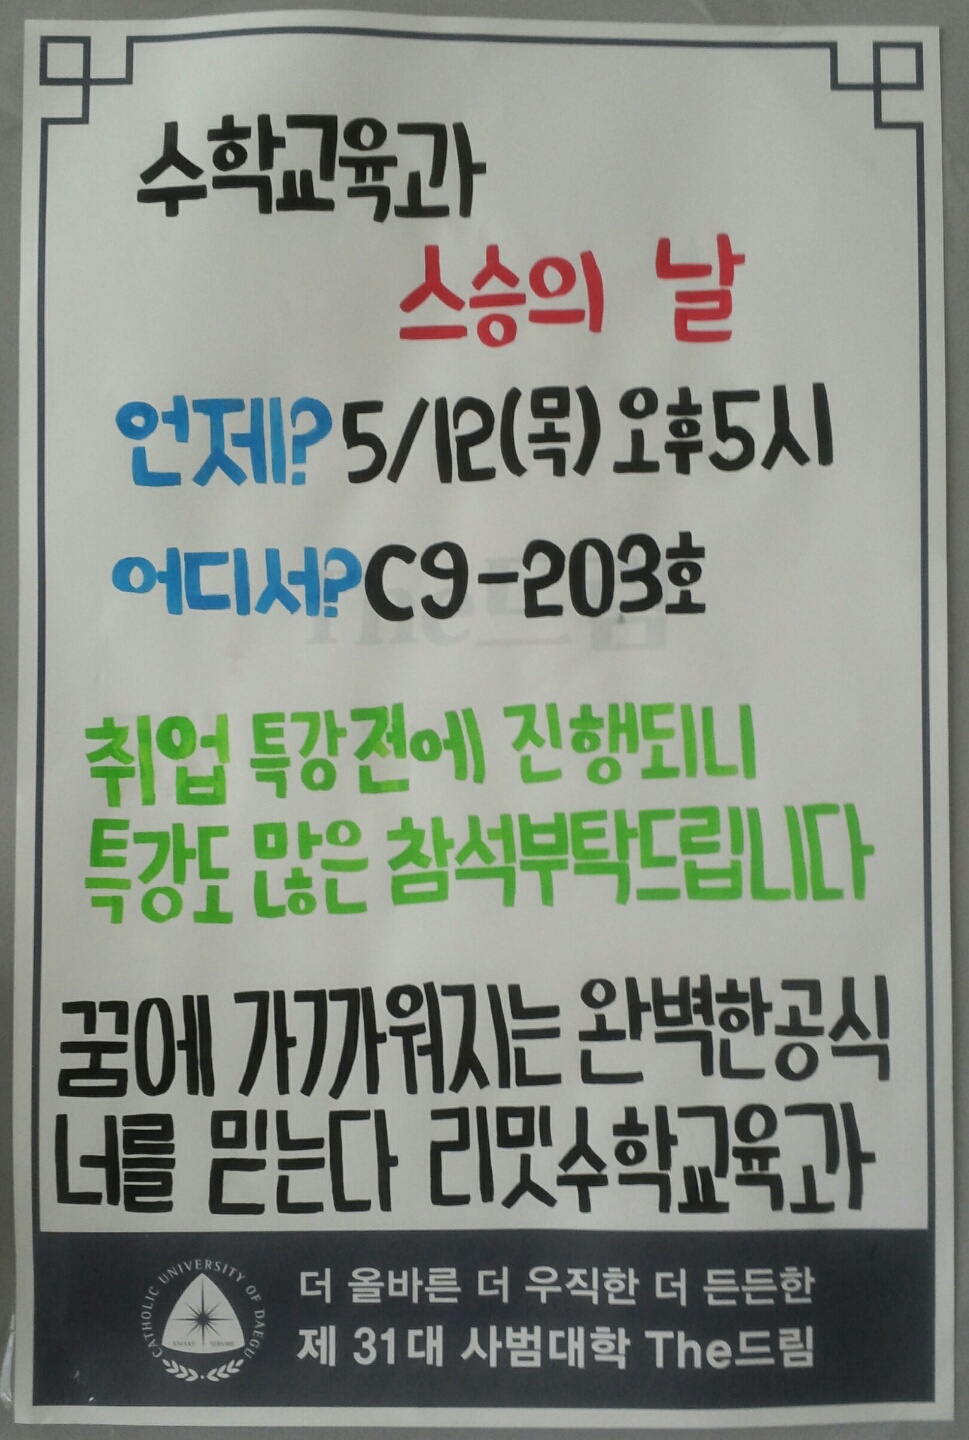 수학교육과
스승의 날
언제? 5/12(목) 오후5시
어디서? C9-203호
취업 특강전에 진행되니
특강도 많은 참석부탁드립니다
꿈에 가까워지는 완벽한공식
너를 믿는다 리밋수학교육과
CATHOLIC UNIVERSITY OF DAEGU
더 올바른 더 우직한 더 든든한
제 31대 사범대학 The드림